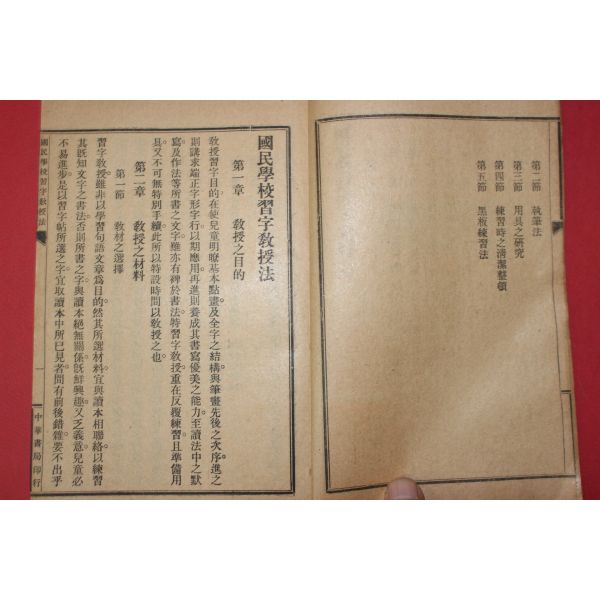 第二節　執筆法
第三節　用具之研究
第四節　練習時之清潔整頓
第五節　黑板練習法
國民學校習字教授法
第一章　教授之目的
教授習字目的在使兒童明瞭基本點畫及全字之結構與筆畫先後之次序。進之
則講求端正字形字行。以期應用。再進則養成其書寫優美之能力。至讀法中之默
寫及作法等所書之文字。雖亦有裨於書法。特習字教授。重在反覆練習。且準備用
具又不可無特別手續。此所以特設時間以教授之也。
第二章　教授之材料
第一節　教材之選擇
習字教授。雖非以學習句語文章爲目的。然其所選材料。宜與讀本相聯絡。以練習
其既知文字之書法。否則所書之字。與讀本絕無關係。既鮮興趣。又乏義意。兒童必
不易進步。是以習字帖所選之字。宜取讀本中所已見者。間有前後錯雜。要不出乎
國民學校習字教授法
一
中華書局印行